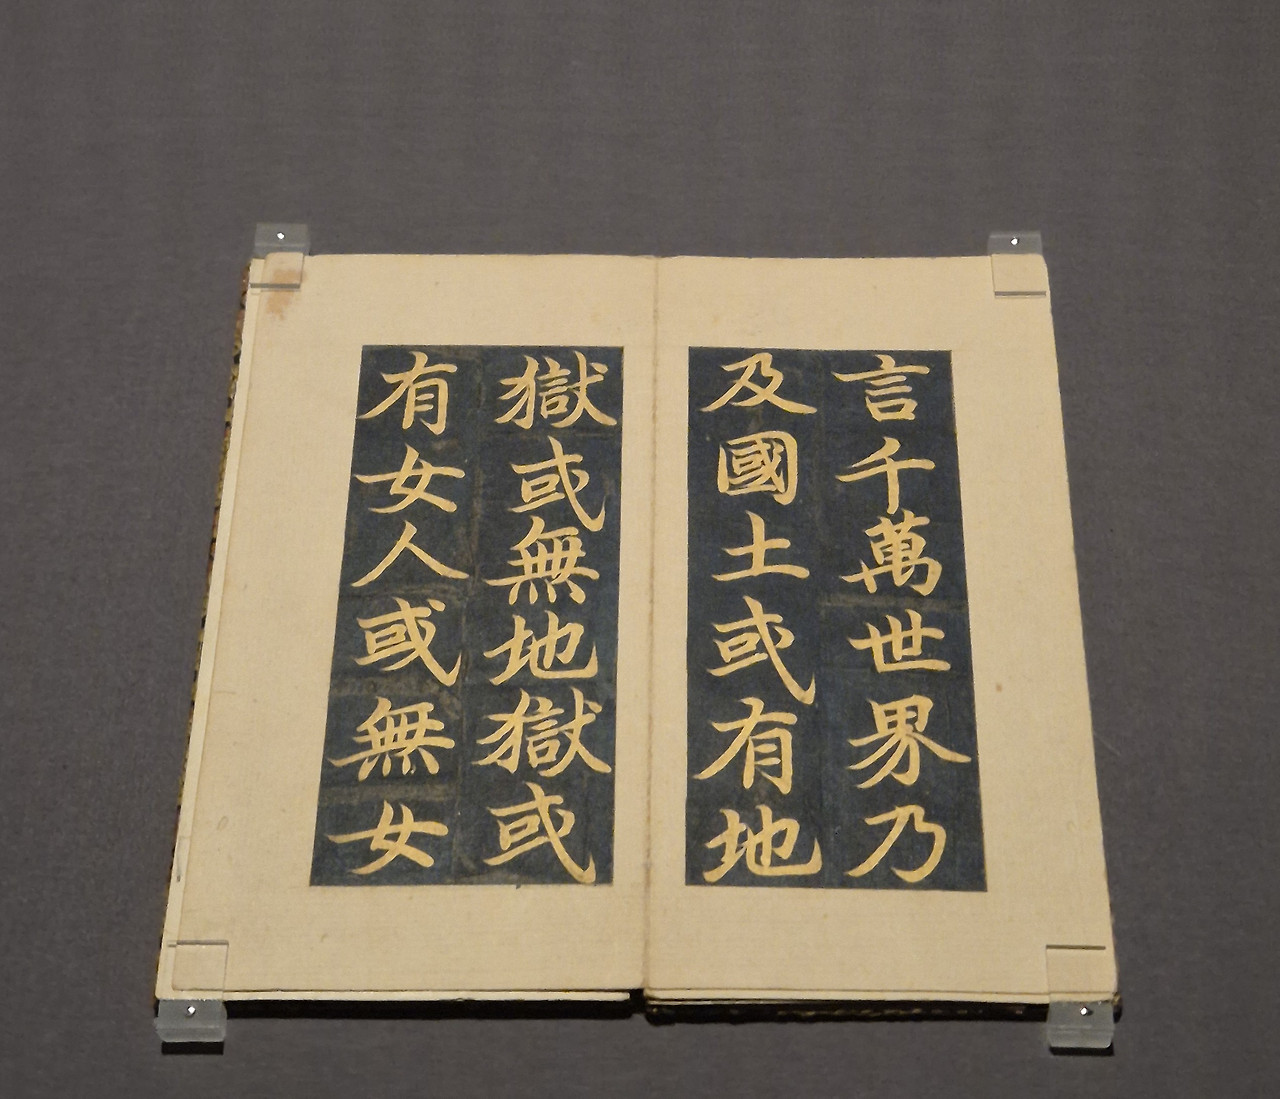 言千萬世界乃
及國土或有地
獄或無地獄或
有女人或無女